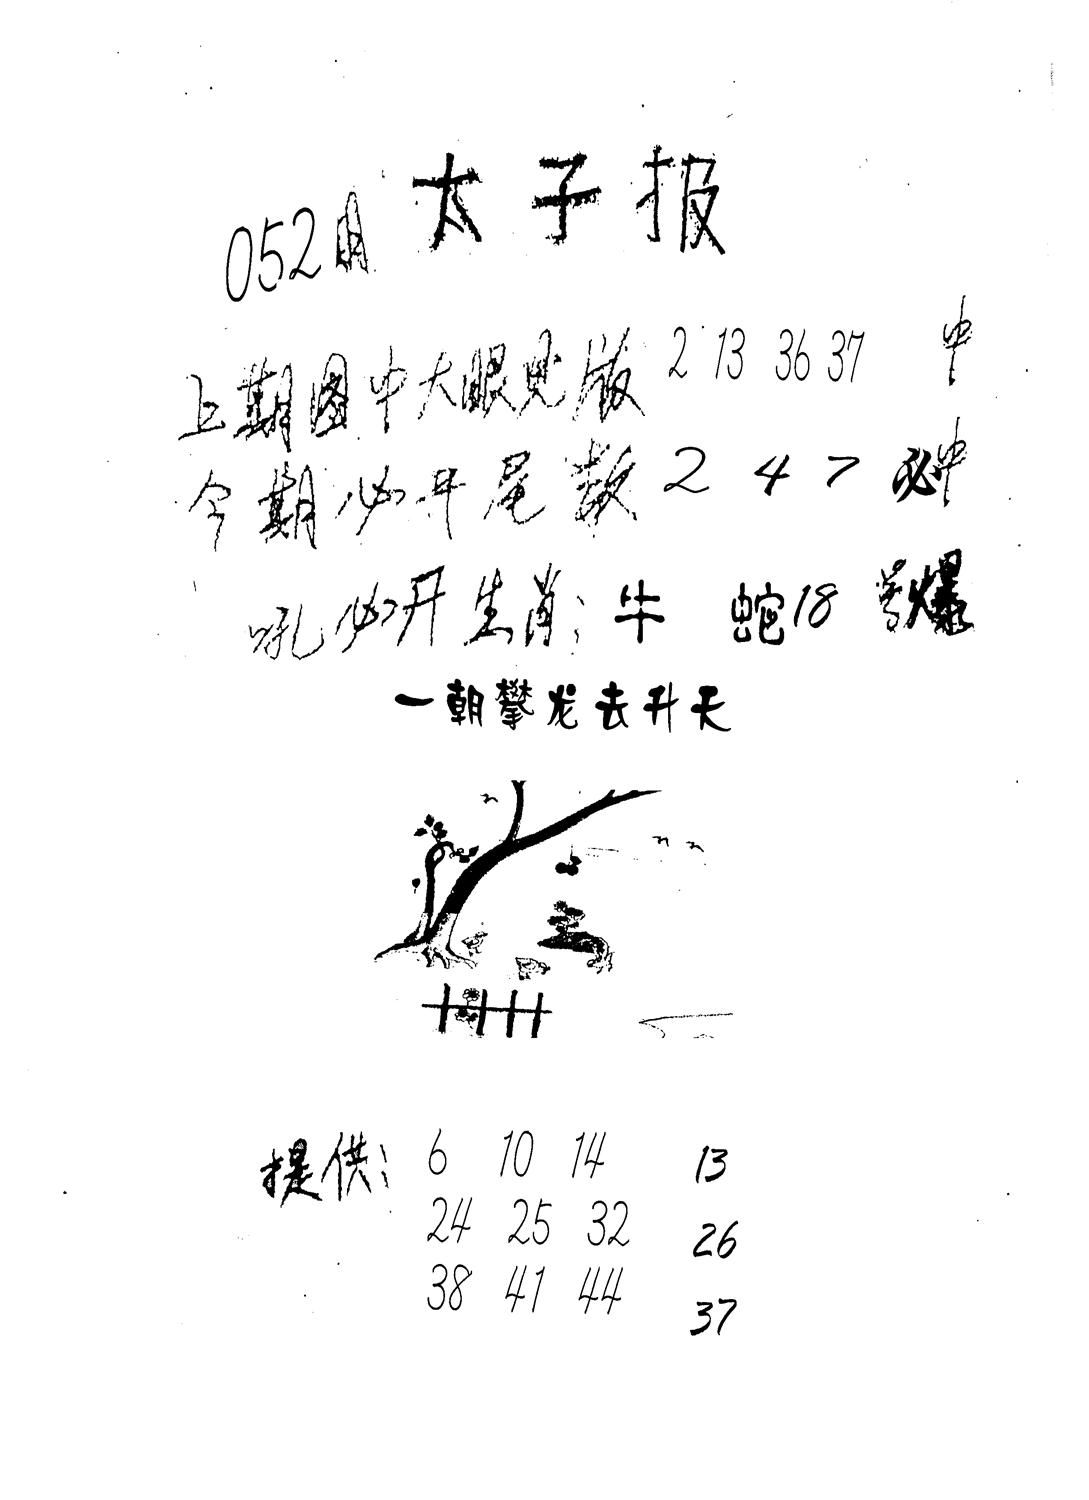 太子报
052期
上期图中大眼见版 2 13 36 37 中
今期必开尾数 2 4 7 必中
吼必开生肖: 牛 蛇18 爆
一朝攀龙去升天
提供: 6 10 14 13
24 25 32 26
38 41 44 37